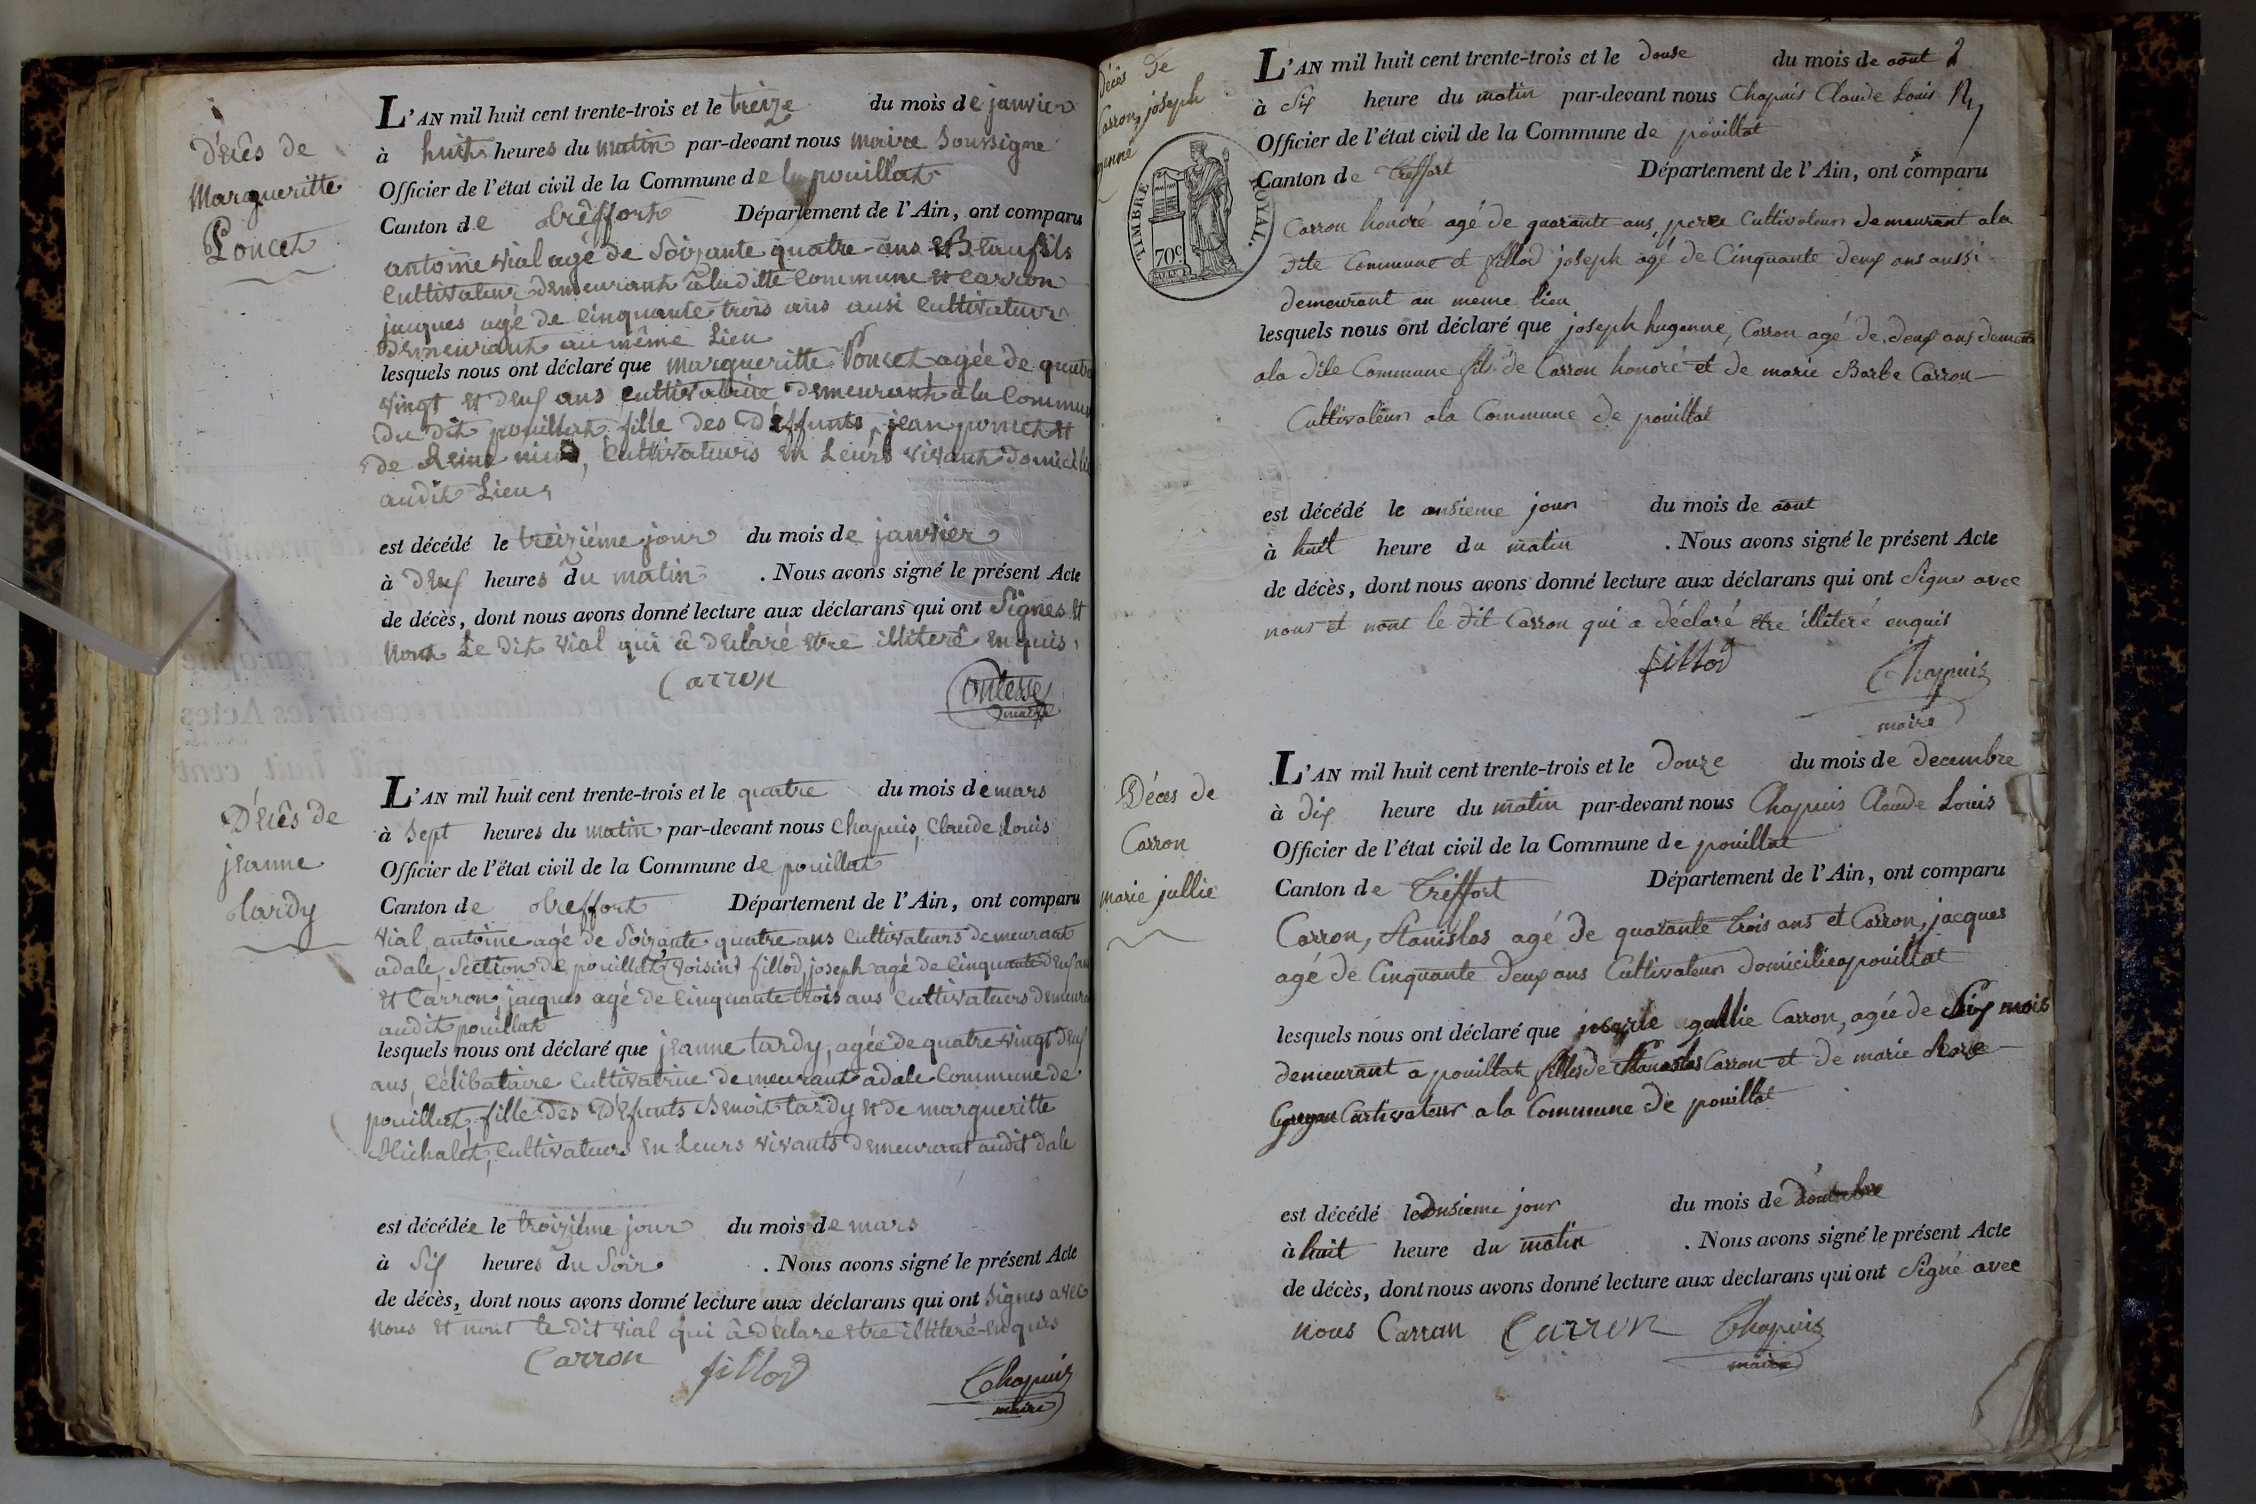 Décès de
Margueritte
Poncet
L'AN mil huit cent trente-trois et le treize du mois de janvier
à huit heures du matin par-devant nous maire soussigne
Officier de l'état civil de la Commune de pouillat
Canton de treffort Département de l'Ain, ont comparu
antoine vial agé de Soixante quatre ans et Beaufils
Cultivateur demeurant à la ditte Commune et Carron
jacques agé de Cinquante trois ans ausi Cultivateur
demeurant au même Lieu
lesquels nous ont déclaré que margueritte Poncet agée de quatre
vingt et deux ans Cultivatrice demeurant à la Commune
du dit pouillat fille des déffunts jean poncet et
de Reine , Cultivateurs en Leurs vivant domicilié
audit Lieu
est décédé le treiziéme jour du mois de janvier
à deux heures du matin . Nous avons signé le présent Acte
de décès, dont nous avons donné lecture aux déclarans qui ont Signés et
nont Le dit vial qui à déclaré etre illiteré enquis
Carron Contesse
maire
Décès de
jeanne
tardy
L'AN mil huit cent trente-trois et le quatre du mois de mars
à Sept heures du matin par-devant nous Chapuis, Claude Louis
Officier de l'état civil de la Commune de pouillat
Canton de treffort Département de l'Ain, ont comparu
vial antoine agé de Soixante quatre ans Cultivateurs demeurant
adale Section de pouillat voisint fillod, joseph agé de Cinquante deux ans
et Carron, jacques agé de Cinquante trois ans Cultivateurs demeurant
audit pouillat
lesquels nous ont déclaré que jeanne tardy, agée de quatre vingt deux
ans, Célibataire Cultivatrice demeurant adale Commune de
pouillat, fille des Défunts Benoit tardy et de margueritte
Michalet, Cultivateurs en Leurs vivants demeurant audit dale
est décédée le troiziéme jour du mois de mars
à Six heures du Soir . Nous avons signé le présent Acte
de décès, dont nous avons donné lecture aux déclarans qui ont Signes avec
nous et nont le dit vial qui à déclare etre illiteré enquis
Carron fillod Chapuis
maire
Décès de
Carron, joseph
TIMBRE ROYAL.
70c
L'AN mil huit cent trente-trois et le douse du mois de aout 2
à Six heure du matin par-devant nous Chapuis Claude Louis
Officier de l'état civil de la Commune de pouillat
Canton de Treffort Département de l'Ain, ont comparu
Carron honoré agé de quarante ans, pere Cultivateur demeurant ala
dite Commune et fillod joseph agé de Cinquante deux ans aussi
demeurant au meme lieu
lesquels nous ont déclaré que joseph hugenne, Carron agé de deux ans demeurt
ala dite Commune fils de Carron honoré et de marie Barbe Carron
Cultivateur ala Commune de pouillat
est décédé le onsieme jour du mois de aout
à huit heure du matin . Nous avons signé le présent Acte
de décès, dont nous avons donné lecture aux déclarans qui ont Signe avec
nous et nont le dit Carron qui a déclaré etre illiteré enquis
fillod Chapuis
maire
Décès de
Carron
marie jullie
L'AN mil huit cent trente-trois et le Douze du mois de decembre
à dix heure du matin par-devant nous Chapuis Claude Louis
Officier de l'état civil de la Commune de pouillat
Canton de Treffort Département de l'Ain, ont comparu
Carron, Stanislas agé de quarante trois ans et Carron, jacques
agé de Cinquante deux ans Cultivateur domicilie a pouillat
lesquels nous ont déclaré que Carron, agée de Six mois
demeurant a pouillat filles de Stanislas Carron et de marie
Cultivateur a la Commune de pouillat
est décédé le onsieme jour du mois de
à huit heure du matin . Nous avons signé le présent Acte
de décès, dont nous avons donné lecture aux déclarans qui ont Signé avec
nous Carran Carron Chapuis
maire